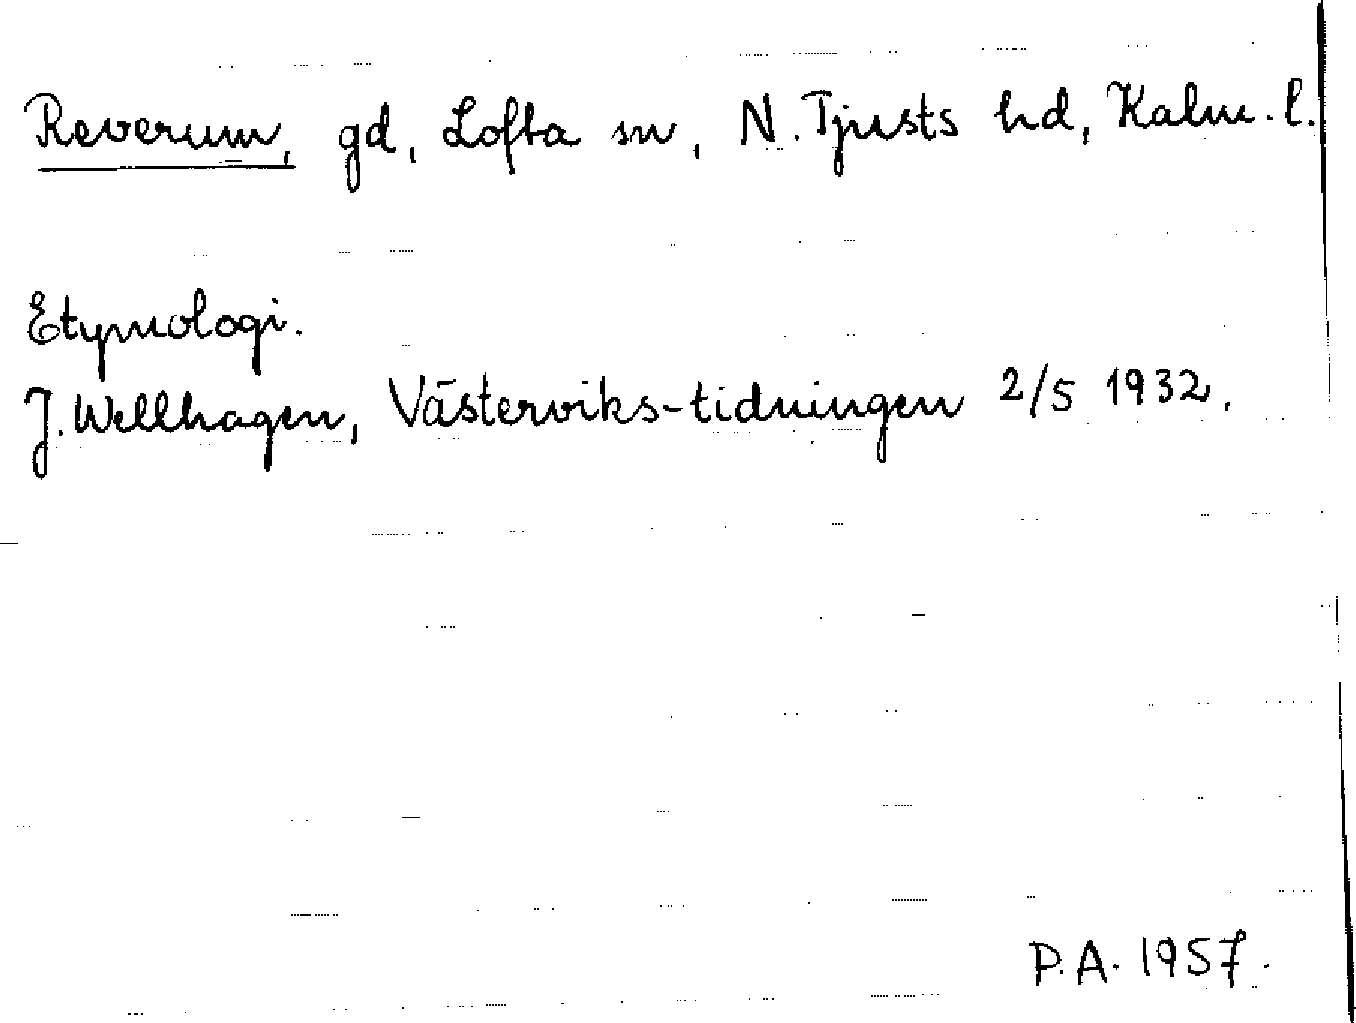 Reverum, gd, Lofta sn, N. Tjusts hd, Kalm. l.
Etymologi.
J. Wellhagen, Västerviks-tidningen 2/5 1932.
P.A. 1957.